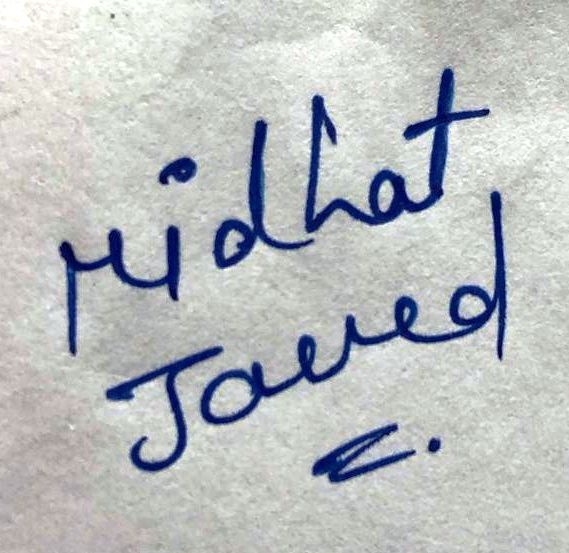 Midhat
Javed